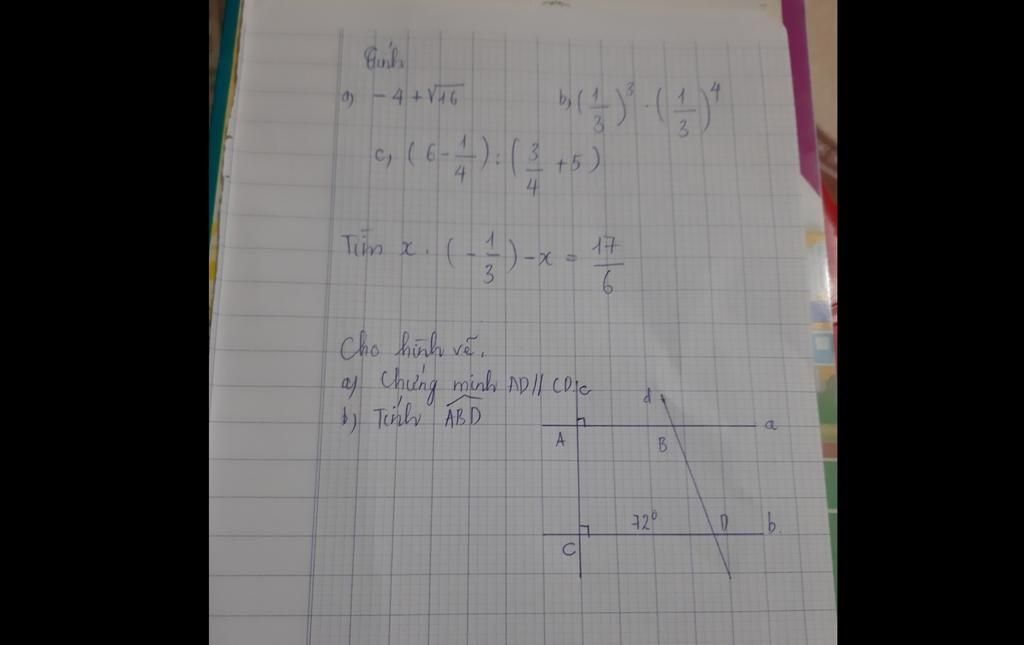 Tính
a) -4 + √16 b, (1/3)^3 . (1/3)^4
c, (6 - 1/4) : (3/4 + 5)
Tìm x . (-1/3) - x = 17/6
Cho hình vẽ.
a) Chứng minh AD // CD.
b) Tính ABD
c
d
A B a
72° D b.
C